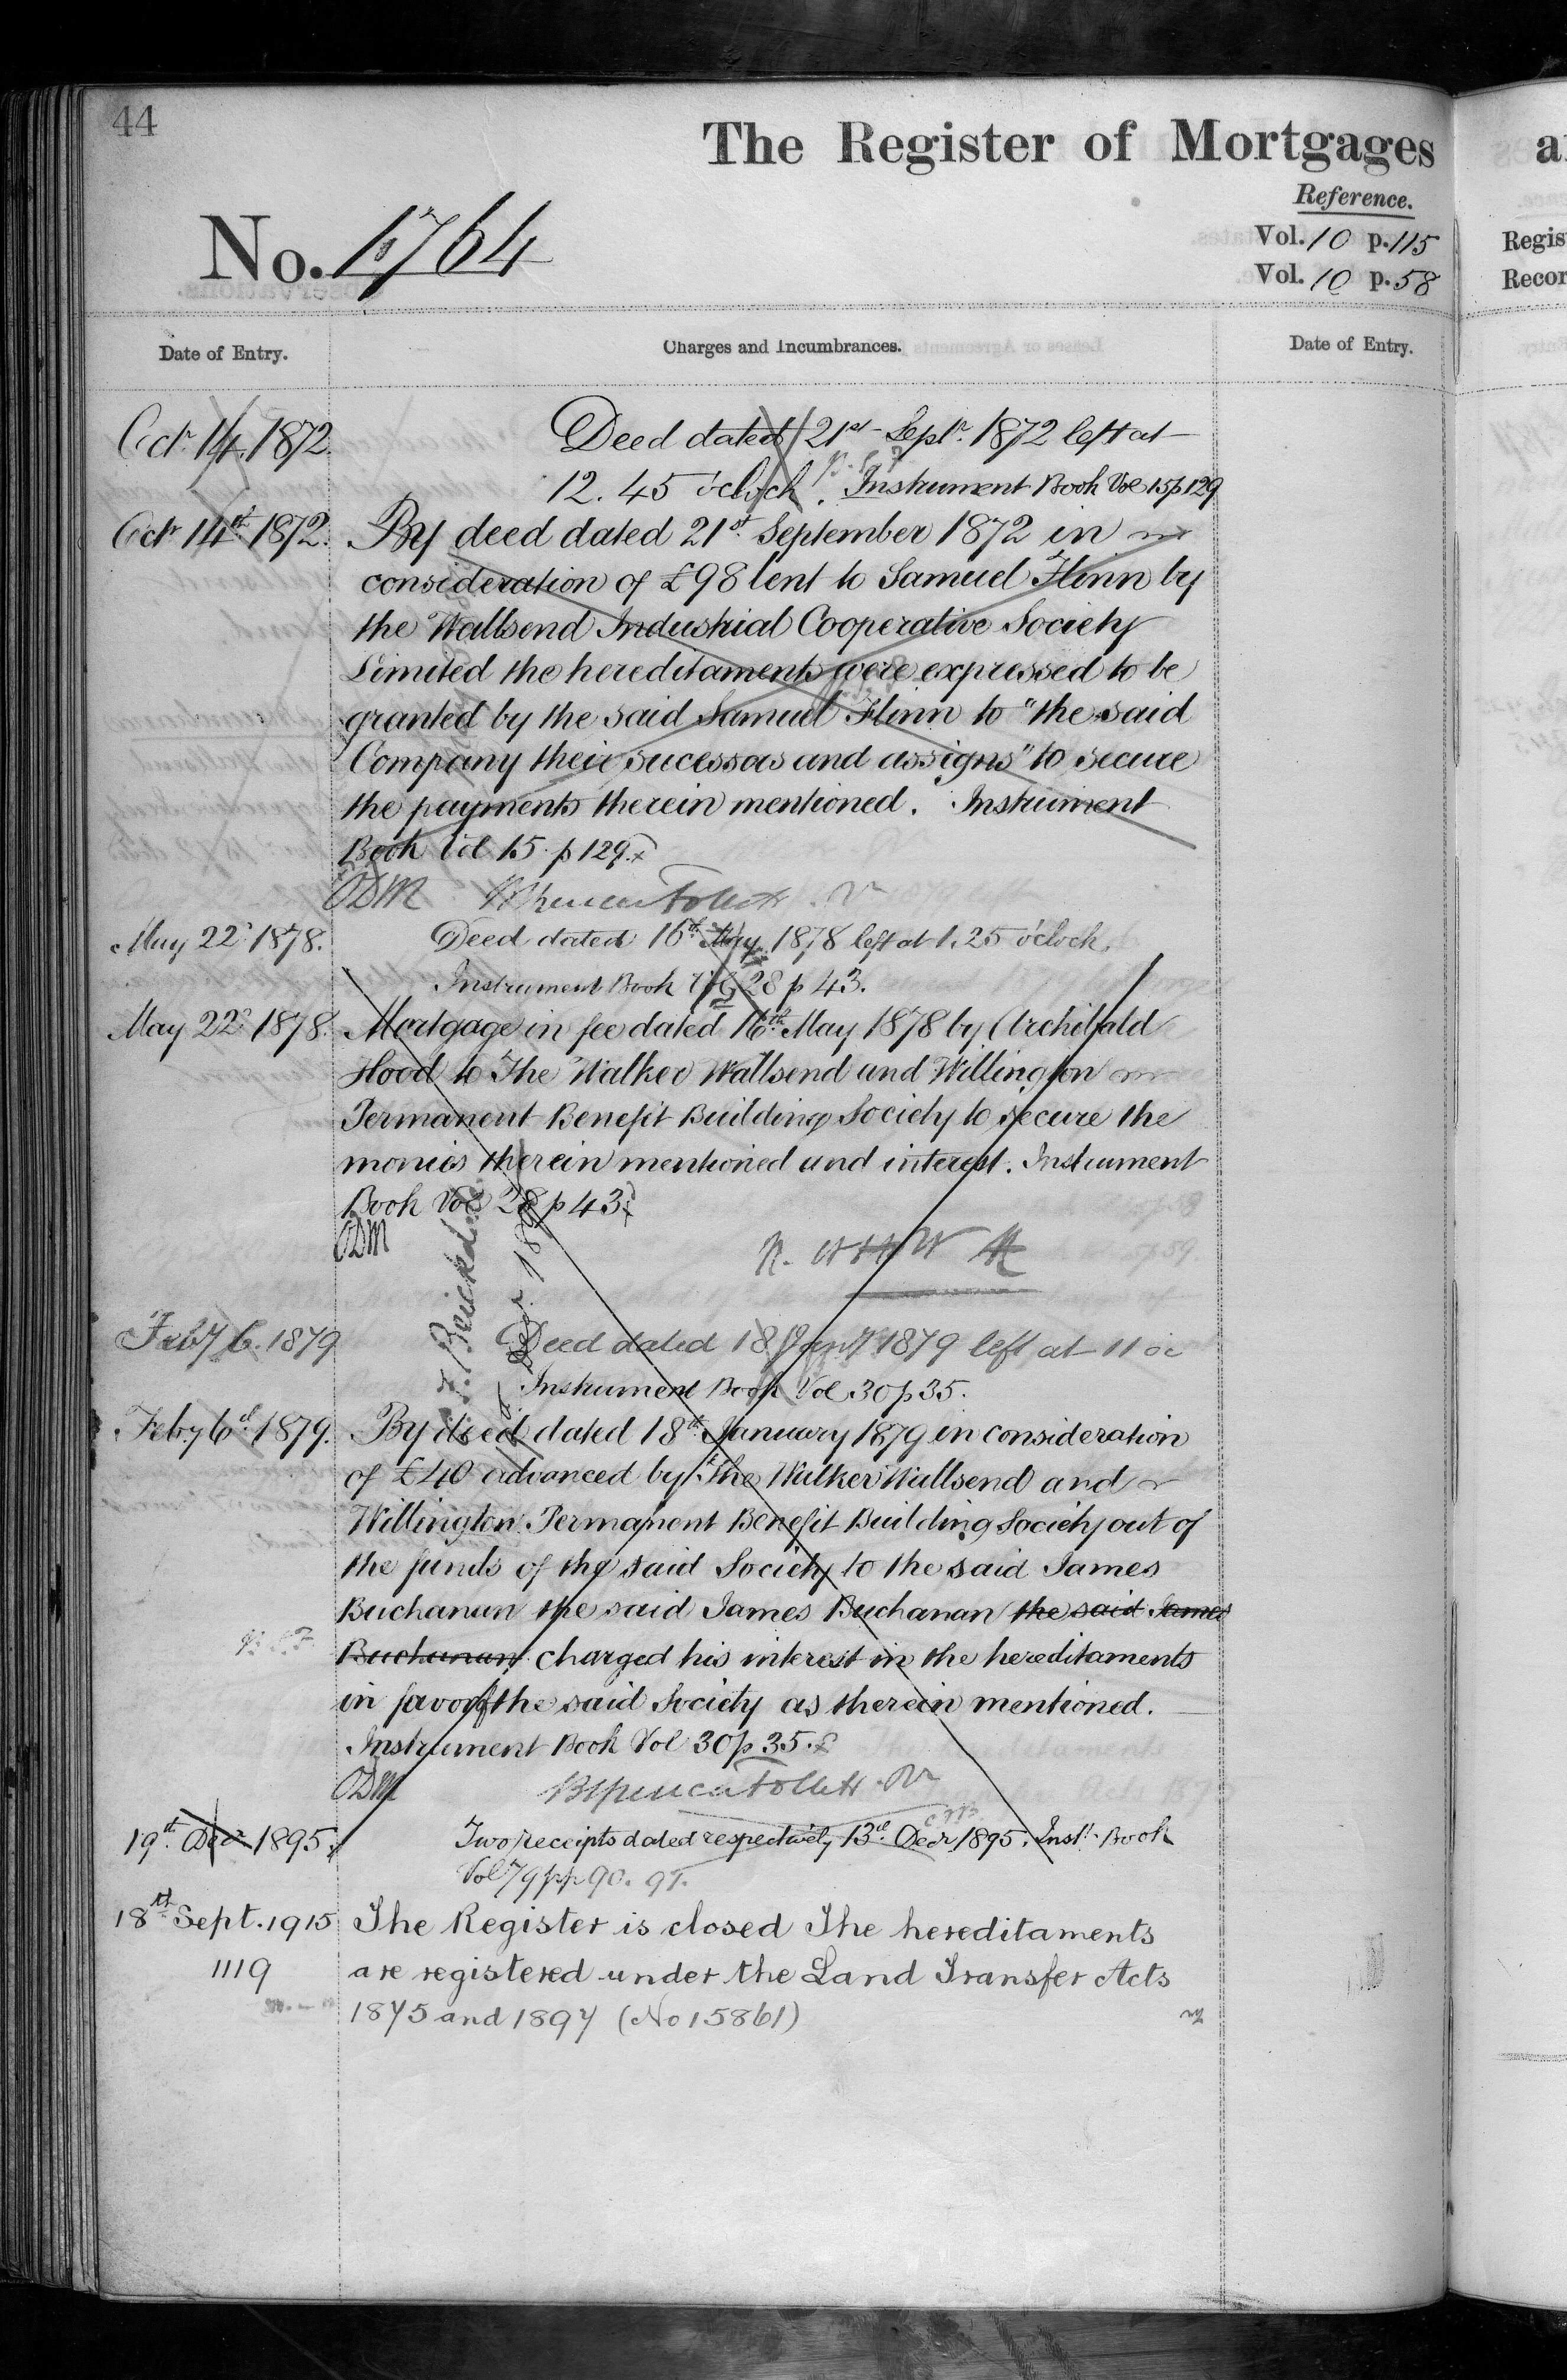 44
The Register of Mortgages
Reference.
No. 1764
Vol. 10 p. 115
Vol. 10 p. 58
Regis
Recor
Date of Entry.
Charges and Incumbrances.
Date of Entry.
Octr. 14. 1872.
Deed dated 21st Septr. 1872 left at
12.45 o'clock. Instrument Book Vol 15 p 129
Octr 14th 1872.
By deed dated 21st September 1872 in
consideration of £98 lent to Samuel Flinn by
the Wallsend Industrial Cooperative Society
Limited the hereditaments were expressed to be
granted by the said Samuel Flinn to "the said
Company their sucessors and assigns" to secure
the payments therein mentioned. Instrument
Book Vol 15. p 129.
ODM
May 22d 1878.
Deed dated 16th May 1878 left at 1.25 o'clock.
Instrument Book Vol 28 p 43.
May 22d 1878.
Mortgage in fee dated 16th May 1878 by Archibald
Hood to The Walker Wallsend and Willington
Permanent Benefit Building Society to secure the
monies therein mentioned and interest. Instrument
Book Vol 28 p 43.
ODM
Feby 6. 1879
Deed dated 18 Jany 1879 left at 11 oc
Instrument Book Vol 30 p 35.
Feby 6th 1879.
By deed dated 18th January 1879 in consideration
of £40 advanced by "The Walker Wallsend and
Willington Permanent Benefit Building Society out of
the funds of the said Society to the said James
Buchanan the said James Buchanan the said James
Buchanan charged his interest in the hereditaments
in favor of the said Society as therein mentioned.
Instrument Book Vol 30 p 35.
ODM
19th Decr 1895.
Two receipts dated respectively 13th Decr 1895. Inst. Book
Vol 79 pp 90. 91.
18th Sept. 1915
The Register is closed The hereditaments
1119
are registered under the Land Transfer Acts
1875 and 1897 (No 15861)